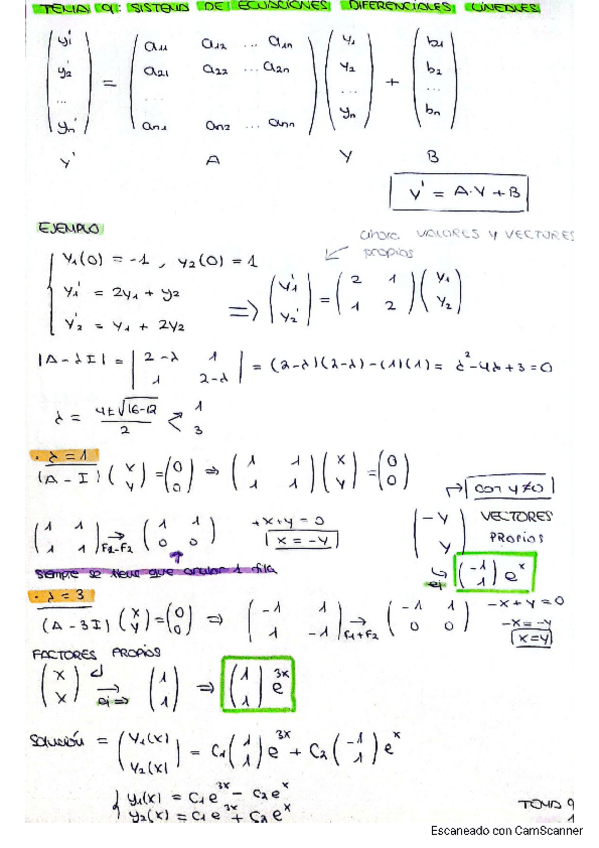 TEMA 9: SISTEMA DE ECUACIONES DIFERENCIALES LINEALES
(y1' y2' ... yn') = (a11 a12 ... a1n
a21 a22 ... a2n
...
an1 an2 ... ann) (y1 y2 ... yn) + (b1 b2 ... bn)
Y' A Y B
Y' = A·Y + B
EJEMPLO
ahora VALORES Y VECTORES propios
y1(0) = -1, y2(0) = 1
y1' = 2y1 + y2
y2' = y1 + 2y2
=> (y1' y2') = (2 1
1 2) (y1 y2)
|A-λI| = |2-λ 1
1 2-λ| = (2-λ)(2-λ) - (1)(1) = λ² - 4λ + 3 = 0
λ = 4±√16-12 / 2 < 1
3
· λ = 1
(A-I) (x y) = (0 0) => (1 1
1 1) (x y) = (0 0)
con y≠0
(1 1
1 1) → F2-F2 (1 1
0 0)
+x+y = 0
x = -y
(-y y) VECTORES PROPIOS
ej (-1 1) e^x
siempre se tiene que anular 1 fila
· λ = 3
(A-3I) (x y) = (0 0) => (-1 1
1 -1) → F1+F2 (-1 1
0 0)
-x+y = 0
-x = -y
x=y
FACTORES PROPIOS
(x x) → ej => (1 1) => (1 1) e^3x
SOLUCIÓN = (y1(x) y2(x) = C1 (1 1) e^3x + C2 (-1 1) e^x
y1(x) = C1 e^3x - C2 e^x
y2(x) = C1 e^3x + C2 e^x
TEMA 9
1
Escaneado con CamScanner